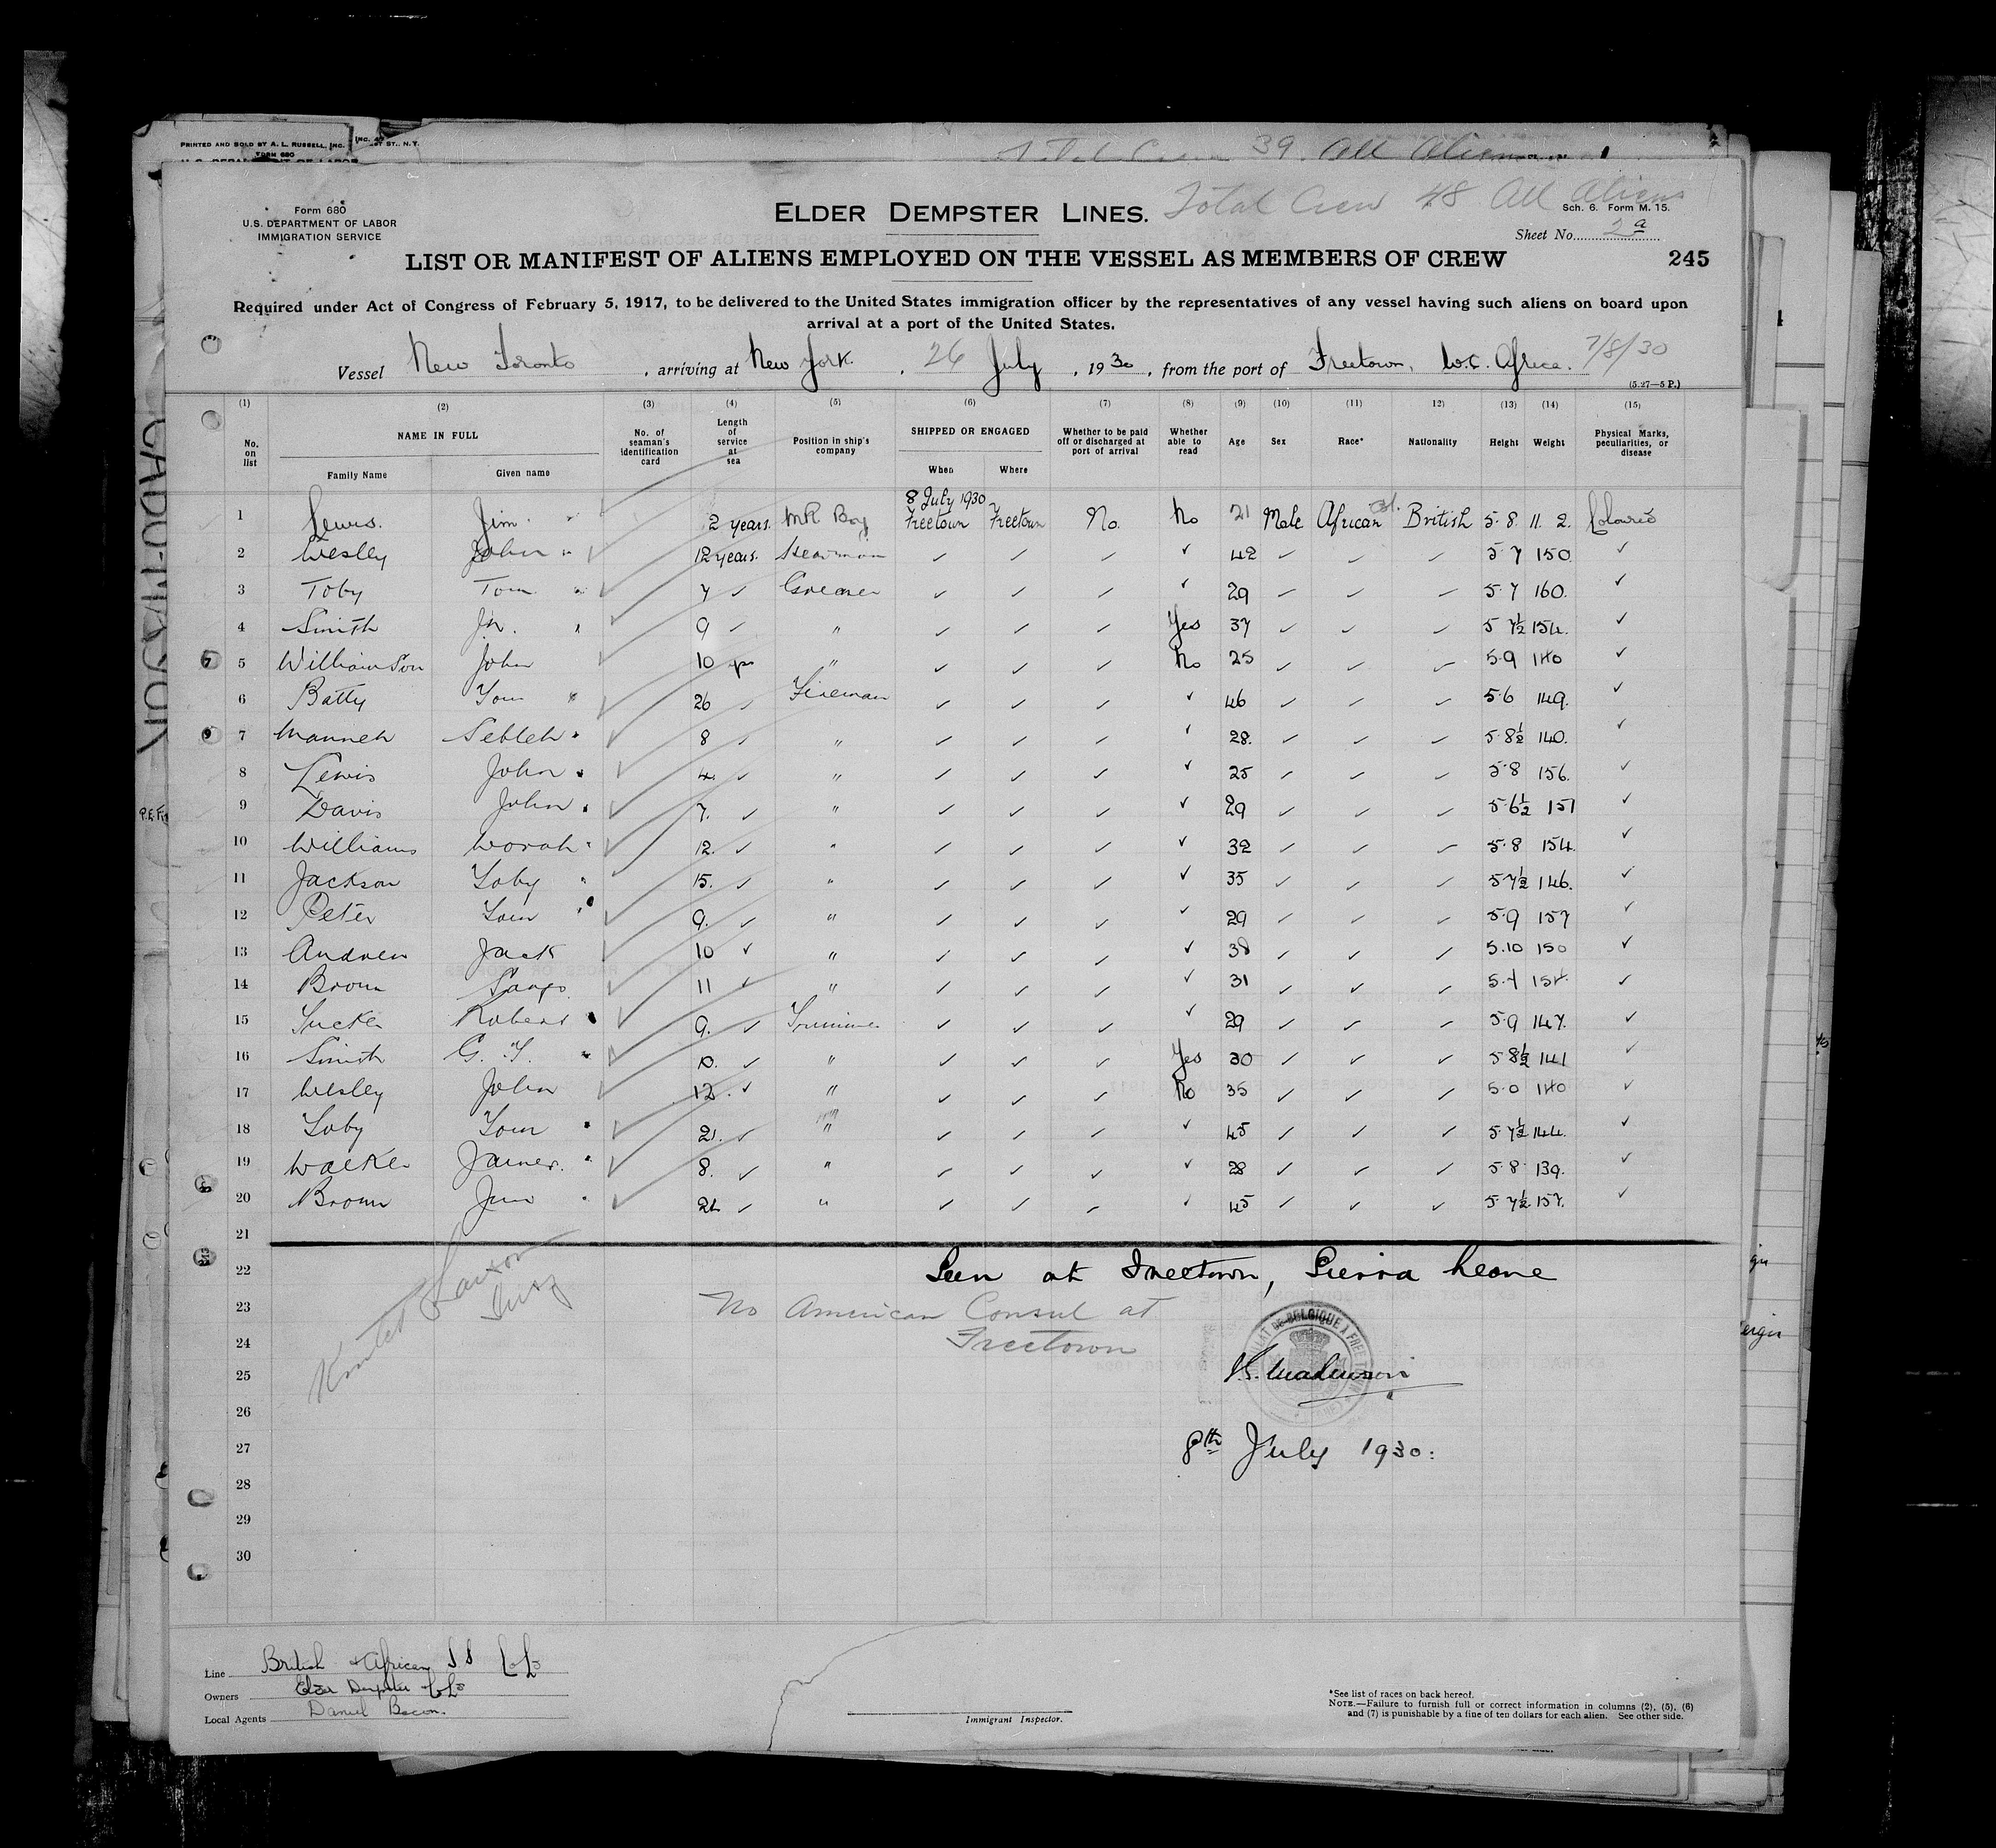 PRINTED AND SOLD BY A. L. RUSSELL, INC.
FORM 680
39. All Aliens
Form 680
U.S. DEPARTMENT OF LABOR
IMMIGRATION SERVICE
ELDER DEMPSTER LINES. Total Crew 48 All Aliens
Sch. 6. Form M. 15.
Sheet No. 2a
LIST OR MANIFEST OF ALIENS EMPLOYED ON THE VESSEL AS MEMBERS OF CREW 245
Required under Act of Congress of February 5, 1917, to be delivered to the United States immigration officer by the representatives of any vessel having such aliens on board upon
arrival at a port of the United States.
Vessel New Toronto, arriving at New York. 26 July, 1930, from the port of Freetown, W.C. Africa. 7/8/30
(5.27—5 P.)
(1) (2) (3) (4) (5) (6) (7) (8) (9) (10) (11) 12) (13) (14) (15)
No. on list NAME IN FULL Family Name Given name No. of seaman's identification card Length of service at sea Position in ship's company SHIPPED OR ENGAGED When Where Whether to be paid off or discharged at port of arrival Whether able to read Age Sex Race* Nationality Height Weight Physical Marks, peculiarities, or disease
8 July 1930
1 Lewis. Jim 2 years. MR Boy Freetown Freetown No. No 21 Male African British 5.8. 11.2. Coloured
2 Wesley John " 12 years. ✓ ✓ ✓ ✓ 42 ✓ ✓ ✓ 5.7 150 ✓
3 Toby Tom " 7 ✓ Greaser ✓ ✓ ✓ ✓ 29 ✓ ✓ ✓ 5.7 160. ✓
4 Smith Jn. " 9 ✓ " ✓ ✓ ✓ Yes 37 ✓ ✓ ✓ 5 7½ 154. ✓
5 Williamson John 10 " ✓ ✓ ✓ No 25 ✓ ✓ ✓ 5.9 140 ✓
6 Batty Tom 26 ✓ Fireman ✓ ✓ ✓ ✓ 46 ✓ ✓ ✓ 5.6 149. ✓
7 Manneh Sebleh 8 ✓ " ✓ ✓ ✓ ✓ 28. ✓ ✓ ✓ 5.8½ 140. ✓
8 Lewis John 4. ✓ " ✓ ✓ ✓ ✓ 25 ✓ ✓ ✓ 5.8 156. ✓
9 Davis John 7. ✓ " ✓ ✓ ✓ ✓ 29 ✓ ✓ ✓ 5.6½ 151 ✓
10 Williams Worah 12. ✓ " ✓ ✓ ✓ ✓ 32 ✓ ✓ ✓ 5.8 154. ✓
11 Jackson Toby 15. ✓ " ✓ ✓ ✓ ✓ 35 ✓ ✓ ✓ 5.7½ 146. ✓
12 Peter Tom 9. ✓ " ✓ ✓ ✓ ✓ 29 ✓ ✓ ✓ 5.9 157 ✓
13 Andrew Jack 10 ✓ " ✓ ✓ ✓ ✓ 38 ✓ ✓ ✓ 5.10 150 ✓
14 Brown 11 ✓ " ✓ ✓ ✓ ✓ 31 ✓ ✓ ✓ ✓
15 Tucker Robert 9. ✓ Trimmer ✓ ✓ ✓ ✓ 29 ✓ ✓ ✓ 5.9 147. ✓
16 Smith G. T. 10. ✓ " ✓ ✓ ✓ Yes 30 ✓ ✓ ✓ 5 8½ 141 ✓
17 Wesley John 12. ✓ " ✓ ✓ ✓ No 35 ✓ ✓ ✓ 5.0 140 ✓
18 Toby Tom 21. ✓ " ✓ ✓ ✓ ✓ 45 ✓ ✓ ✓ 5.7½ 144. ✓
19 Walker James. 8. ✓ " ✓ ✓ ✓ ✓ 28 ✓ ✓ ✓ 5.8 139. ✓
20 Brown Jim ✓ " ✓ ✓ ✓ ✓ 45 ✓ ✓ ✓ 5.7½ 157. ✓
21
22 Seen at Freetown, Sierra Leone
23 No American Consul at
24 Freetown
25
26
27 8th July 1930:
28
29
30
Line British & African SS Co Ld
Owners Elder Dempster & Co Ld
Local Agents Daniel Bacon.
Immigrant Inspector.
*See list of races on back hereof.
NOTE.—Failure to furnish full or correct information in columns (2), (5), (6)
and (7) is punishable by a fine of ten dollars for each alien. See other side.